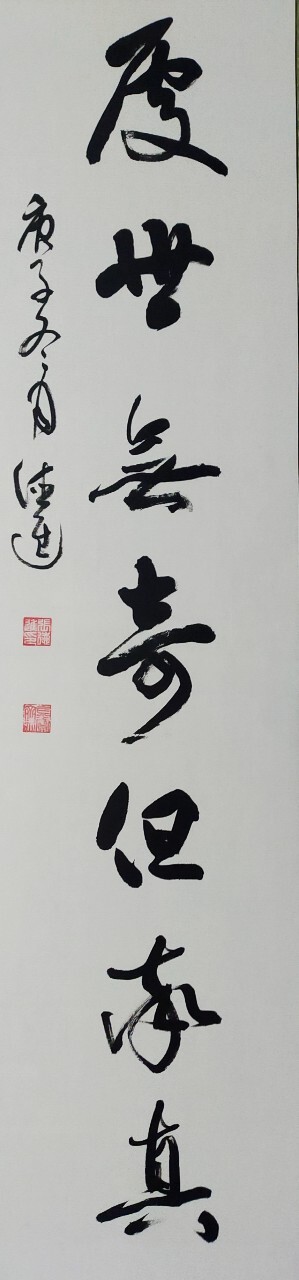 處世無奇但率真
庚子冬月 德進